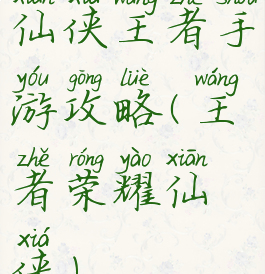 xiān xiá wáng zhě shǒu
仙侠王者手
yóu gōng lüè wáng
游攻略(王
zhě róng yào xiān
者荣耀仙
xiá
侠)